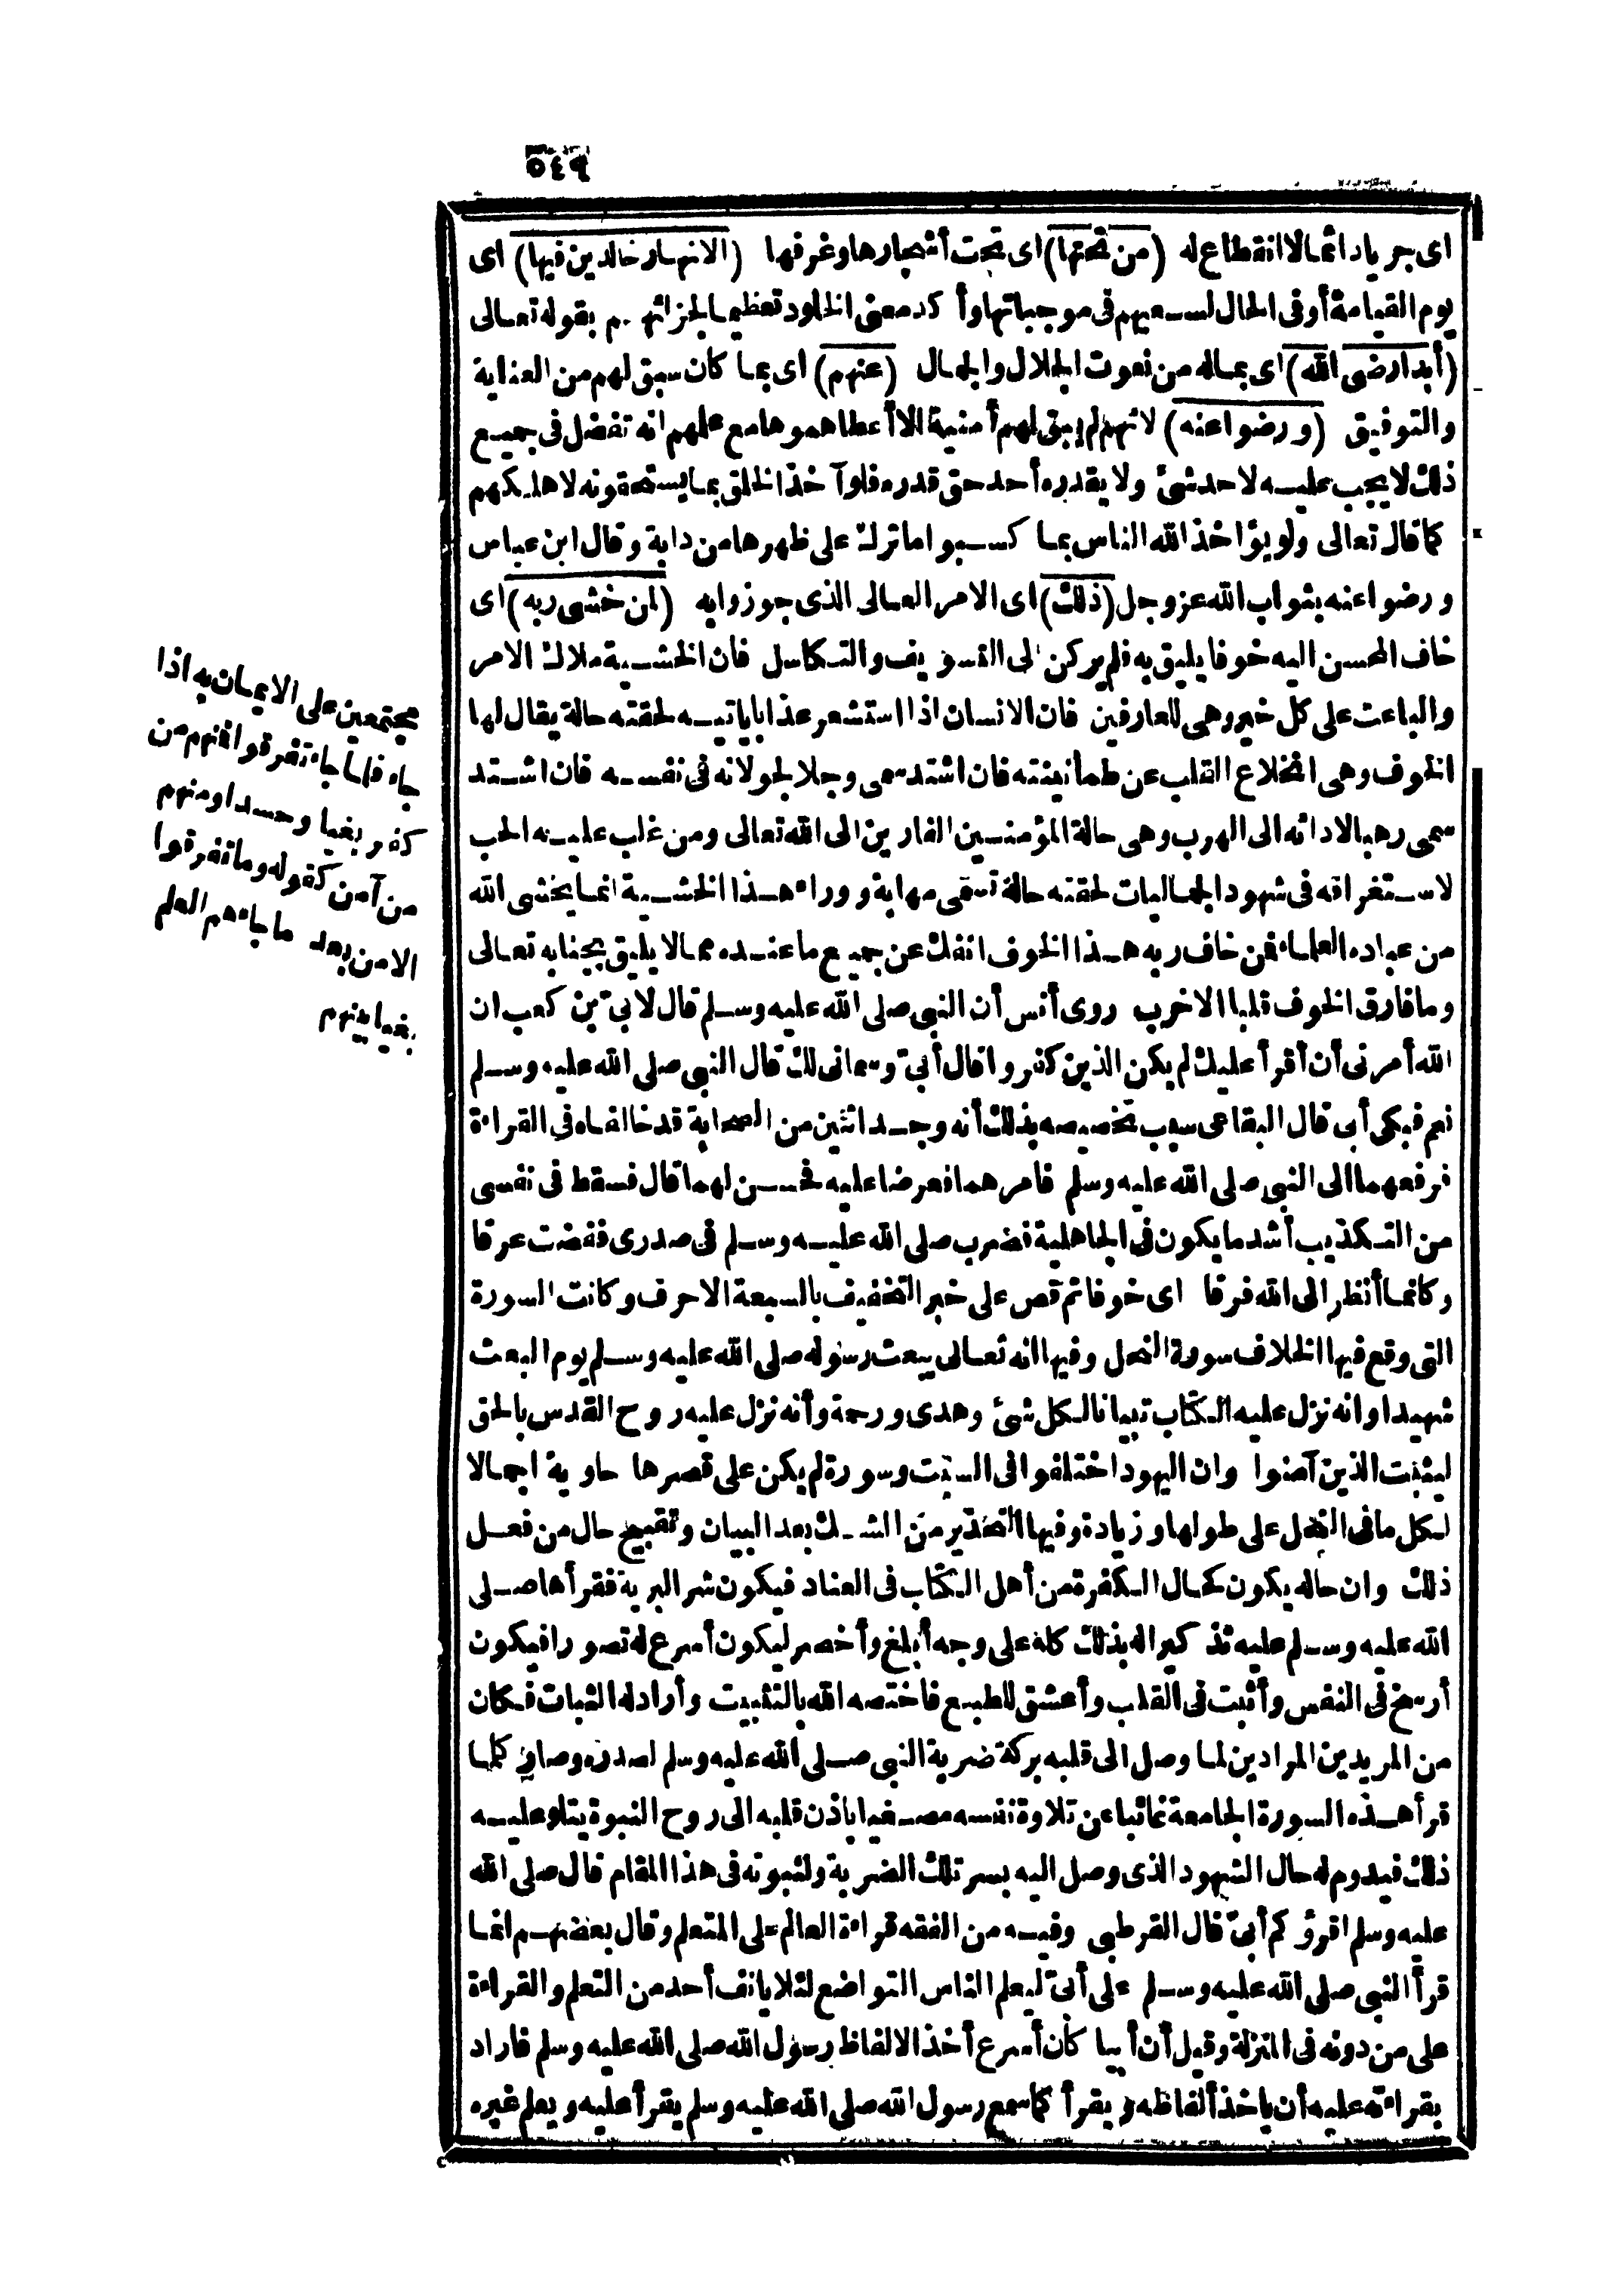 ٥٤٩
اى جريا دائما لا انقطاع له (من تحتها) اى تحت أشجارها وغرفها (الانهار خالدين فيها) اى
يوم القيامة أو فى الحال لسعيهم فى موجباتها وأكد معنى الخلود تعظيما لجزائهم بقوله تعالى
(أبدا رضى الله) اى بماله من نعوت الجلال والجمال (عنهم) اى بما كان سبق لهم من العناية
والتوفيق (ورضوا عنه) لانهم لم يبق لهم أمنية الا أعطاهموها مع علمهم انه تفضل فى جميع
ذلك لا يجب عليه لاحد شئ ولا يقدره أحد حق قدره فلو آخذ الخلق بما يستحقونه لاهلكهم
كما قال تعالى ولو يؤاخذ الله الناس بما كسبوا ما ترك على ظهرها من دابة وقال ابن عباس
ورضوا عنه بثواب الله عز وجل (ذلك) اى الامر العالى الذى جوزوا به (لمن خشى ربه) اى
خاف المحسن اليه خوفا يليق به فلم يركن الى التسويف والتكاسل فان الخشية ملاك الامر
والباعث على كل خير وهى للعارفين فان الانسان اذا استشعر عذابا ياتيه لحقته حالة يقال لها
الخوف وهى انخلاع القلب عن طمأنينته فان اشتد سمى وجلا لجولانه فى نفسه فان اشتد
سمى رهبا لادائه الى الهرب وهى حالة المؤمنين الفارين الى الله تعالى ومن غلب عليه الحب
لاستغراقه فى شهود الجماليات لحقته حالة تسمى مهابة ووراء هذا الخشية انما يخشى الله
من عباده العلماء فمن خاف ربه هذا الخوف انفك عن جميع ما عنده مما لا يليق بجنابه تعالى
وما فارق الخوف قلبا الا خرب روى أنس أن النبى صلى الله عليه وسلم قال لابىّ بن كعب ان
الله أمرنى أن أقرأ عليك لم يكن الذين كفروا قال أبىّ وسمانى لك قال النبى صلى الله عليه وسلم
نعم فبكى أبى قال البقاعى سبب تخصيصه بذلك أنه وجد اثنين من الصحابة قد خالفاه فى القراءة
فرفعهما الى النبى صلى الله عليه وسلم فامرهما فعرضا عليه فحسن لهما قال فسقط فى نفسى
من التكذيب أشد ما يكون فى الجاهلية فضرب صلى الله عليه وسلم فى صدرى ففضت عرقا
وكانما أنظر الى الله فرقا اى خوفا ثم قص على خبر التخفيف بالسبعة الاحرف وكانت السورة
التى وقع فيها الخلاف سورة النحل وفيها انه تعالى يبعث رسوله صلى الله عليه وسلم يوم البعث
شهيدا وانه نزل عليه الكتاب تبيانا لكل شئ وهدى ورحمة وأنه نزل عليه روح القدس بالحق
ليثبت الذين آمنوا وان اليهود اختلفوا فى السبت وسورة لم يكن على قصرها حاوية اجمالا
لكل ما فى النحل على طولها وزيادة وفيها التحذير من الشك بعد البيان وتقبيح حال من فعل
ذلك وان حاله يكون كحال الكفرة من أهل الكتاب فى العناد فيكون شر البرية فقرأها صلى
الله عليه وسلم عليه تذكيرا له بذلك كله على وجه أبلغ وأخصر ليكون أسرع له تصورا فيكون
أرسخ فى النفس وأثبت فى القلب وأعشق للطبع فاختصه الله بالتثبيت وأراد له الثبات فكان
من المريدين المرادين لما وصل الى قلبه بركة ضربة النبى صلى الله عليه وسلم لصدره وصار كلما
قرأ هذه السورة الجامعة غائبا عن تلاوة نفسه مصغيا باذن قلبه الى روح النبوة يتلو عليه
ذلك فيدوم له حال الشهود الذى وصل اليه بسر تلك الضربة ولثبوته فى هذا المقام قال صلى الله
عليه وسلم اقرؤكم أبىّ قال القرطبى وفيه من الفقه قراءة العالم على المتعلم وقال بعضهم انما
قرأ النبى صلى الله عليه وسلم على أبىّ ليعلم الناس التواضع لئلا يانف أحد من التعلم والقراءة
على من دونه فى المنزلة وقيل أن أبيا كان أسرع أخذ الالفاظ رسول الله صلى الله عليه وسلم فاراد
بقراءته عليه أن ياخذ ألفاظه ويقرأ كما سمع رسول الله صلى الله عليه وسلم يقرأ عليه ويعلم غيره
مجتمعين على الايمان به اذا
جاء فلما جاء تفرقوا فمنهم من
كفر بغيا وحسدا ومنهم
من آمن كقوله وما تفرقوا
الا من بعد ما جاءهم العلم
بغيا بينهم